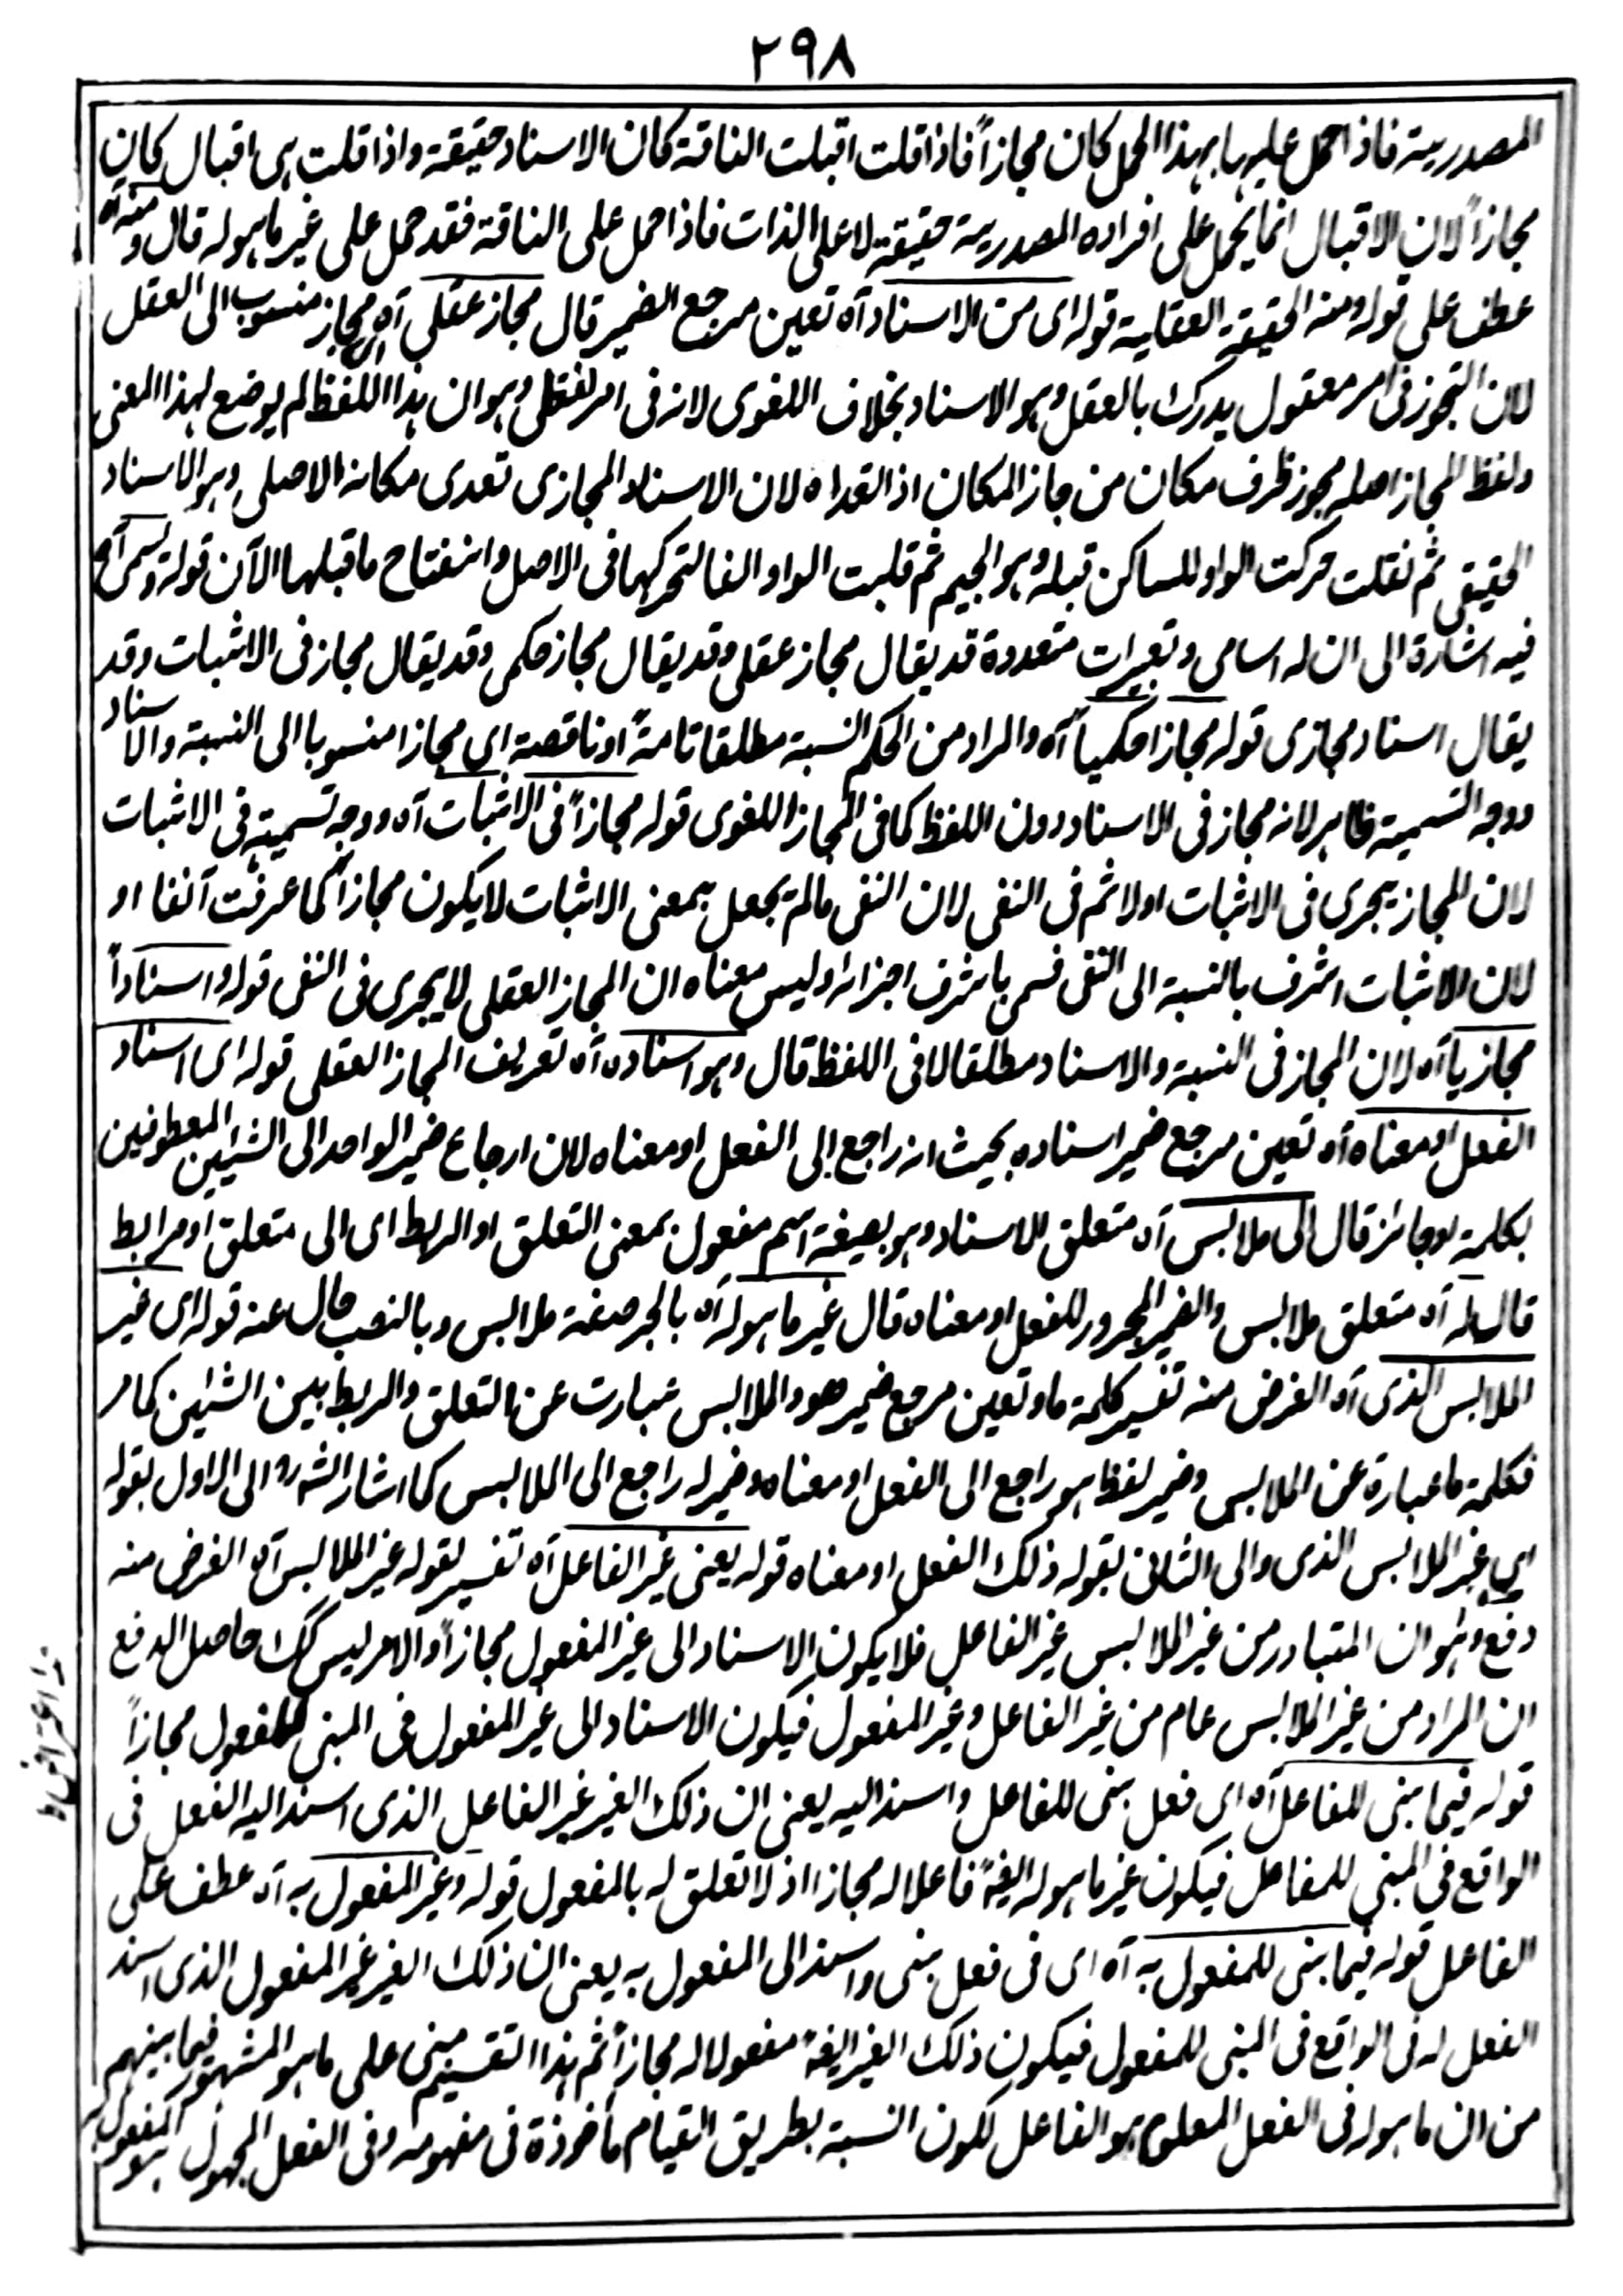 ٢٩٨
المصدرية فاذا حمل عليها بهذا الحمل كان مجازاً فاذا قلت اقبلت الناقة كان الاسناد حقيقة واذا قلت هى اقبال كان
مجازاً لان الاقبال انما يحمل على افراده المصدرية حقيقة لا على الذات فاذا حمل على الناقة فقد حمل على غير ما هو له قال ومنه آه
عطف على قوله ومنه الحقيقة العقلية قوله اى من الاسناد آه تعين مرجع الضمير قال مجاز عقلى آه اى مجاز منسوب الى العقل
لان التجوز فى امر معقول يدرك بالعقل وهو الاسناد بخلاف اللغوى لانه فى امر لفظى وهو ان هذا اللفظ لم يوضع لهذا المعنى
ولفظ المجاز اصله مجوز ظرف مكان من جاز المكان اذا تعداه لان الاسناد المجازى تعدى مكانه الاصلى وهو الاسناد
الحقيقى ثم نقلت حركت الواو للساكن قبله وهو الجيم ثم قلبت الواو الفا لتحركها فى الاصل وانفتاح ما قبلها الآن قوله ويسمى آه
فيه اشارة الى ان له اسامى وتعبيرات متعددة قد يقال مجاز عقلى وقد يقال مجاز حكمى وقد يقال مجاز فى الاثبات وقد
يقال اسناد مجازى قوله مجازا حكمياً آه والمراد من الحكم النسبة مطلقا تامةً او ناقصة اى مجازا منسوبا الى النسبة والاسناد
ووجه التسمية ظاهر لانه مجاز فى الاسناد دون اللفظ كما فى المجاز اللغوى قوله مجازاً فى الاثبات آه ووجه تسميته فى الاثبات
لان المجاز يجرى فى الاثبات اولا ثم فى النفى لان النفى ما لم يجعل بمعنى الاثبات لا يكون مجازاً كما عرفت آنفا او
لان الاثبات اشرف بالنسبة الى النفى فسمى باشرف اجزائه وليس معناه ان المجاز العقلى لا يجرى فى النفى قوله واسناداً
مجازيا آه لان المجاز فى النسبة والاسناد مطلقا لا فى اللفظ قال وهو اسناده آه تعريف المجاز العقلى قوله اى اسناد
الفعل او معناه آه تعين مرجع ضمير اسناده بحيث انه راجع الى الفعل او معناه لان ارجاع ضمير الواحد الى الشيئين المعطوفين
بكلمة او جائز قال الى ملابس آه متعلق للاسناد وهو بصيغة اسم مفعول بمعنى التعلق او الربط اى الى متعلق او مرابط
قال له آه متعلق ملابس والضمير المجرور للفعل او معناه قال غير ما هو له آه بالجر صفة ملابس وبالنصب حال عنه قوله اى غير
الملابس الذى آه الغرض منه تفسير كلمة ما وتعين مرجع ضمير هو والملابس عبارت عن التعلق والربط بين الشيئين كما مر
فكلمة ما عبارة عن الملابس وضمير لفظ هو راجع الى الفعل او معناه وضمير له راجع الى الملابس كما اشار الشه الى الاول بقوله
اى غير الملابس الذى والى الثانى بقوله ذلك الفعل او معناه قوله يعنى غير الفاعل آه تفسير لقوله غير الملابس آه الغرض منه
دفع وهو ان المتبادر من غير الملابس غير الفاعل فلا يكون الاسناد الى غير المفعول مجازاً والامر ليس كك حاصل الدفع
ان المراد من غير الملابس عام من غير الفاعل وغير المفعول فيكون الاسناد الى غير المفعول فى المبنى للمفعول مجازاً
قوله فيما بنى للفاعل آه اى فعل بنى للفاعل واسند اليه يعنى ان ذلك الغير غير الفاعل الذى اسند اليه الفعل فى
الواقع فى المبنى للفاعل فيكون غير ما هو له ايضً فاعلا له مجازا اذ لا تعلق له بالمفعول قوله وغير المفعول به آه عطف على
الفاعل قوله فيما بنى للمفعول به آه اى فى فعل بنى واسند الى المفعول به يعنى ان ذلك الغير غير المفعول الذى اسند
الفعل له فى الواقع فى المبنى للمفعول فيكون ذلك الغير ايضً مفعولا له مجازاً ثم هذا التقسيم مبنى على ما هو المشهور فيما بينهم
من ان ما هو له فى الفعل المعلوم هو الفاعل لكون النسبة بطريق القيام مأخوذة فى مفهومه وفى الفعل المجهول هو المفعول به